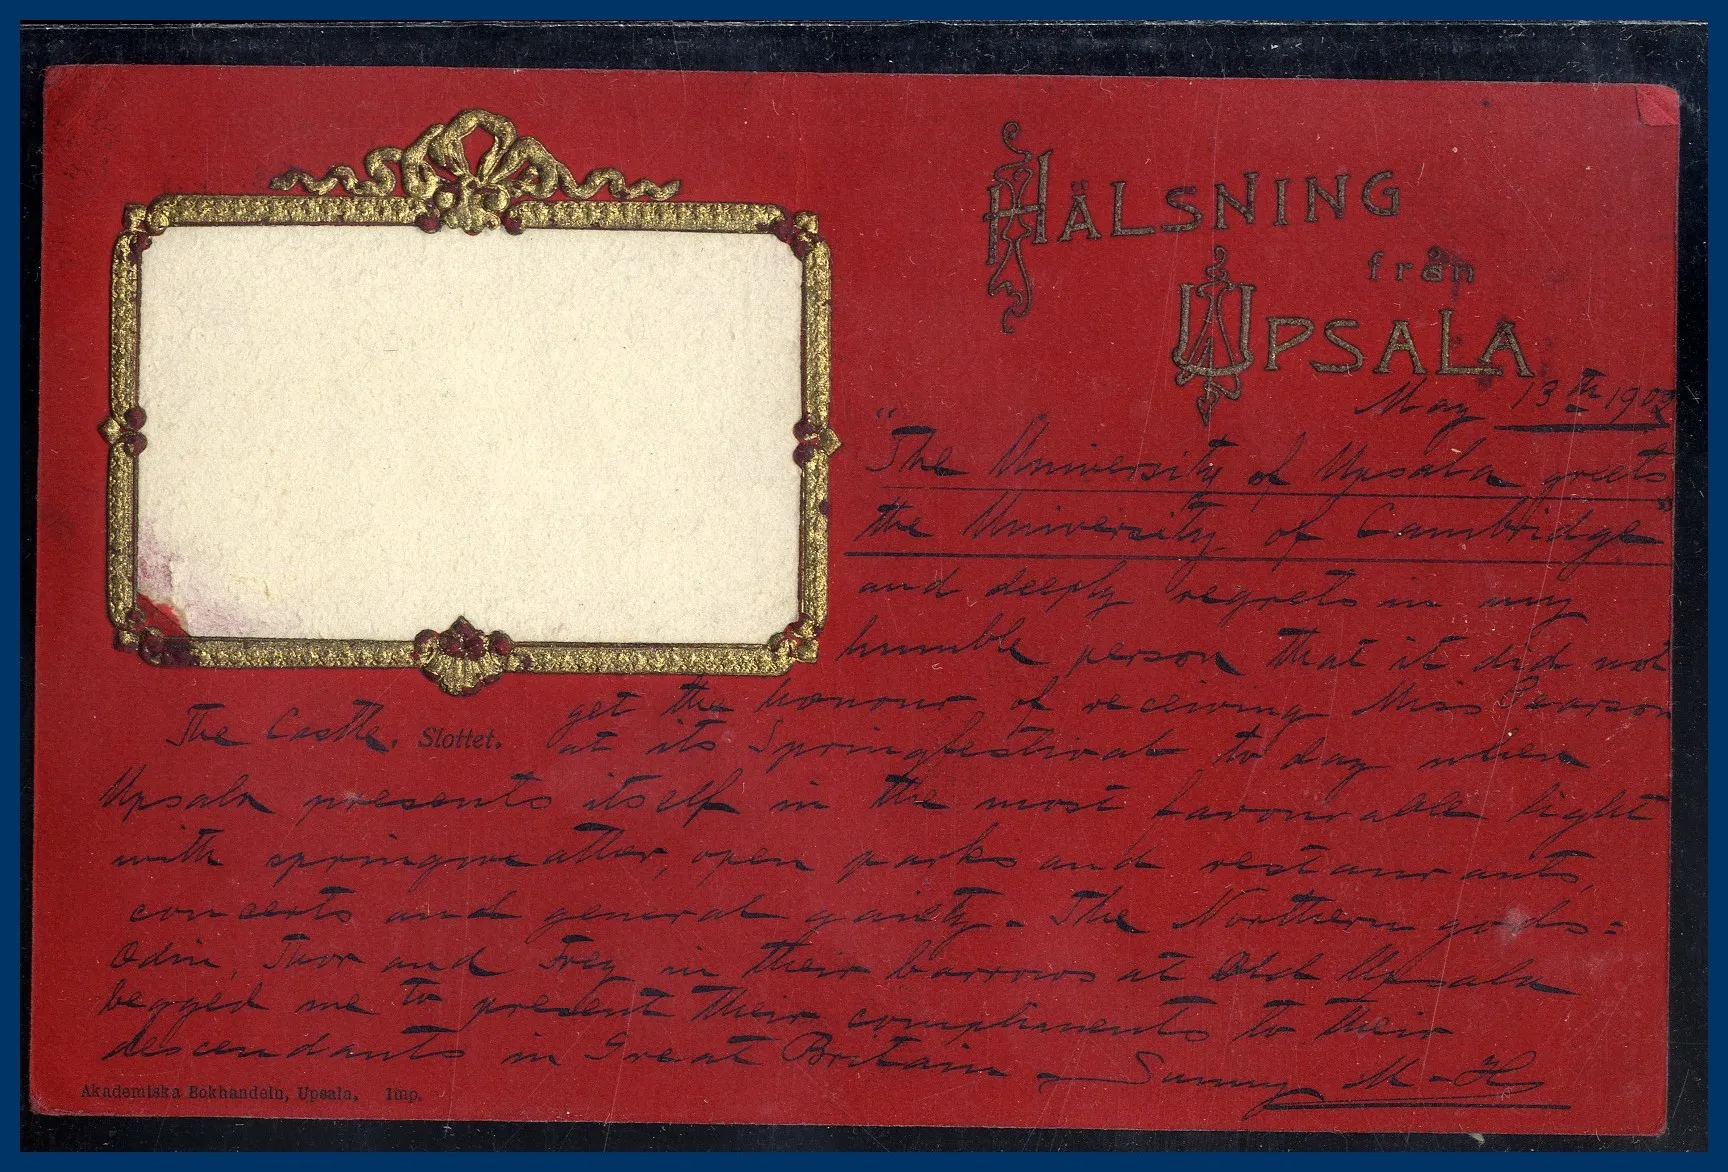 HÄLSNING
från
UPSALA
May 13th 1902
"The University of Upsala greets
the University of Cambridge"
and deeply regrets in my
humble person that it did not
get the honour of receiving Miss Pearson
The Castle. Slottet. at its Springfestival to day when
Upsala presents itself in the most favourable light
with springweather, open parks and restaurants,
concerts and general gaiety - The Northern gods:
Odin, Thor and Frey in their barrows at Old Upsala
begged me to present their compliments to their
descendants in Great Britain - Sunny M-H
Akademiska Bokhandeln, Upsala. Imp.